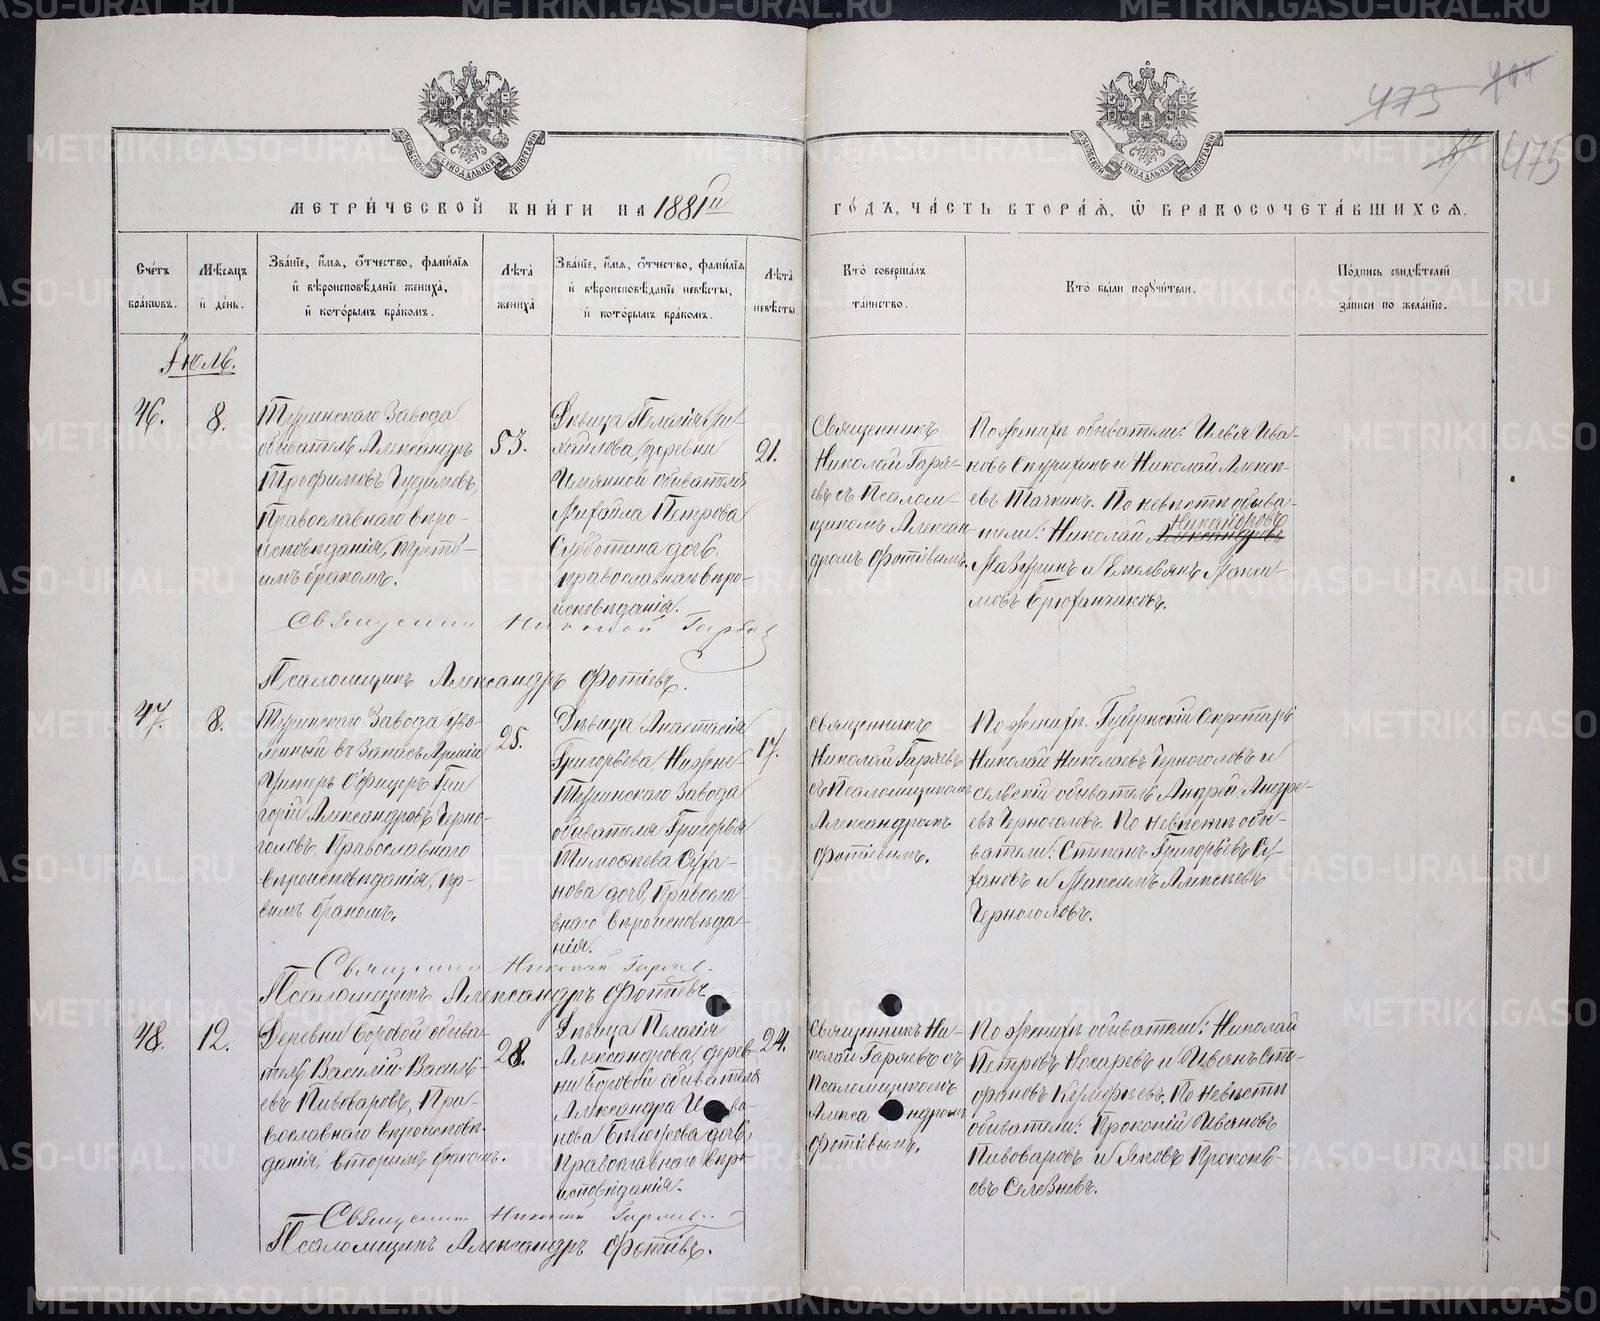 473
404
475
МЕТРИЧЕСКОЙ КНИГИ НА 1881й
ГОДЪ, ЧАСТЬ ВТОРАЯ, Ѿ БРАКОСОЧЕТАВШИХСЯ.
Счетъ браковъ.
Мѣсяцъ и день.
Званіе, имя, отчество, фамилія
и вѣроисповѣданіе жениха,
и которымъ бракомъ.
Лѣта жениха
Званіе, имя, отчество, фамилія
и вѣроисповѣданіе невѣсты,
и которымъ бракомъ.
Лѣта невѣсты.
Кто совершалъ
таинство.
Кто были поручители.
Подпись свидѣтелей
записи по желанію.
Іюль.
46.
8.
Туринскаго Завода
обыватель Александръ
Трофимовъ
Православнаго вѣро-
исповѣданія, треть-
имъ бракомъ.
53.
Дѣвица Пелагія Ми-
хайлова, деревни
Имянной обывателя
Михаила Петрова
Субботина дочь,
православнаго вѣро-
исповѣданія.
21.
Священникъ
Николай Гаря-
евъ съ Псалом-
щикомъ Алексан-
дромъ Фотіевымъ.
По женихѣ обыватели: Илья Ива-
новъ и Николай Алексѣ-
евъ Тачкинъ. По невѣстѣ обыва-
тели: Николай Никаноровъ
Мазуринъ и Емельянъ Макси-
мовъ Брюханчиковъ.
Священникъ Николай Гаряевъ
Псаломщикъ Александръ Фотіевъ.
47.
8.
Туринскаго Завода уво-
ленный въ Запасъ Арміи
Унтеръ Офицеръ Гри-
горій Александровъ Черно-
головъ, Православнаго
вѣроисповѣданія, пер-
вымъ бракомъ.
25.
Дѣвица Анастасія
Григорьева, Нижне-
Туринскаго Завода
обывателя Григорья
Тимофѣева Суха-
нова дочь, Правосла-
внаго вѣроисповѣда-
нія.
17.
Священникъ
Николай Гаряевъ
съ Псаломщикомъ
Александромъ
Фотіевымъ.
По женихѣ: Губернскій Секретарь
Николай Николаевъ Черноголовъ и
сельскій обыватель Андрей Андре-
евъ Черноголовъ. По невѣстѣ обы-
ватели: Степанъ Григорьевъ Су-
хановъ и Максимъ Алексѣевъ
Черноголовъ.
Священникъ Николай Гаряевъ.
Псаломщикъ Александръ Фотіевъ
48.
12.
Деревни Боровой обыва-
тель Василій Василь-
евъ Пивоваровъ, Пра-
вославнаго вѣроисповѣ-
данія, вторымъ бракомъ.
28.
Дѣвица Пелагія
Александрова, дерев-
ни Боровой обывателя
Александра Ива-
нова дочь,
Православнаго вѣро-
исповѣданія.
24.
Священникъ Ни-
колай Гаряевъ съ
Псаломщикомъ
Александромъ
Фотіевымъ.
По женихѣ обыватели: Николай
Петровъ Носаревъ и Иванъ Сте-
фановъ По невѣстѣ
обыватели: Прокопій Ивановъ
Пивоваровъ и Яковъ Прокопь-
евъ Селезневъ.
Священникъ Николай Гаряевъ
Псаломщикъ Александръ Фотіевъ.